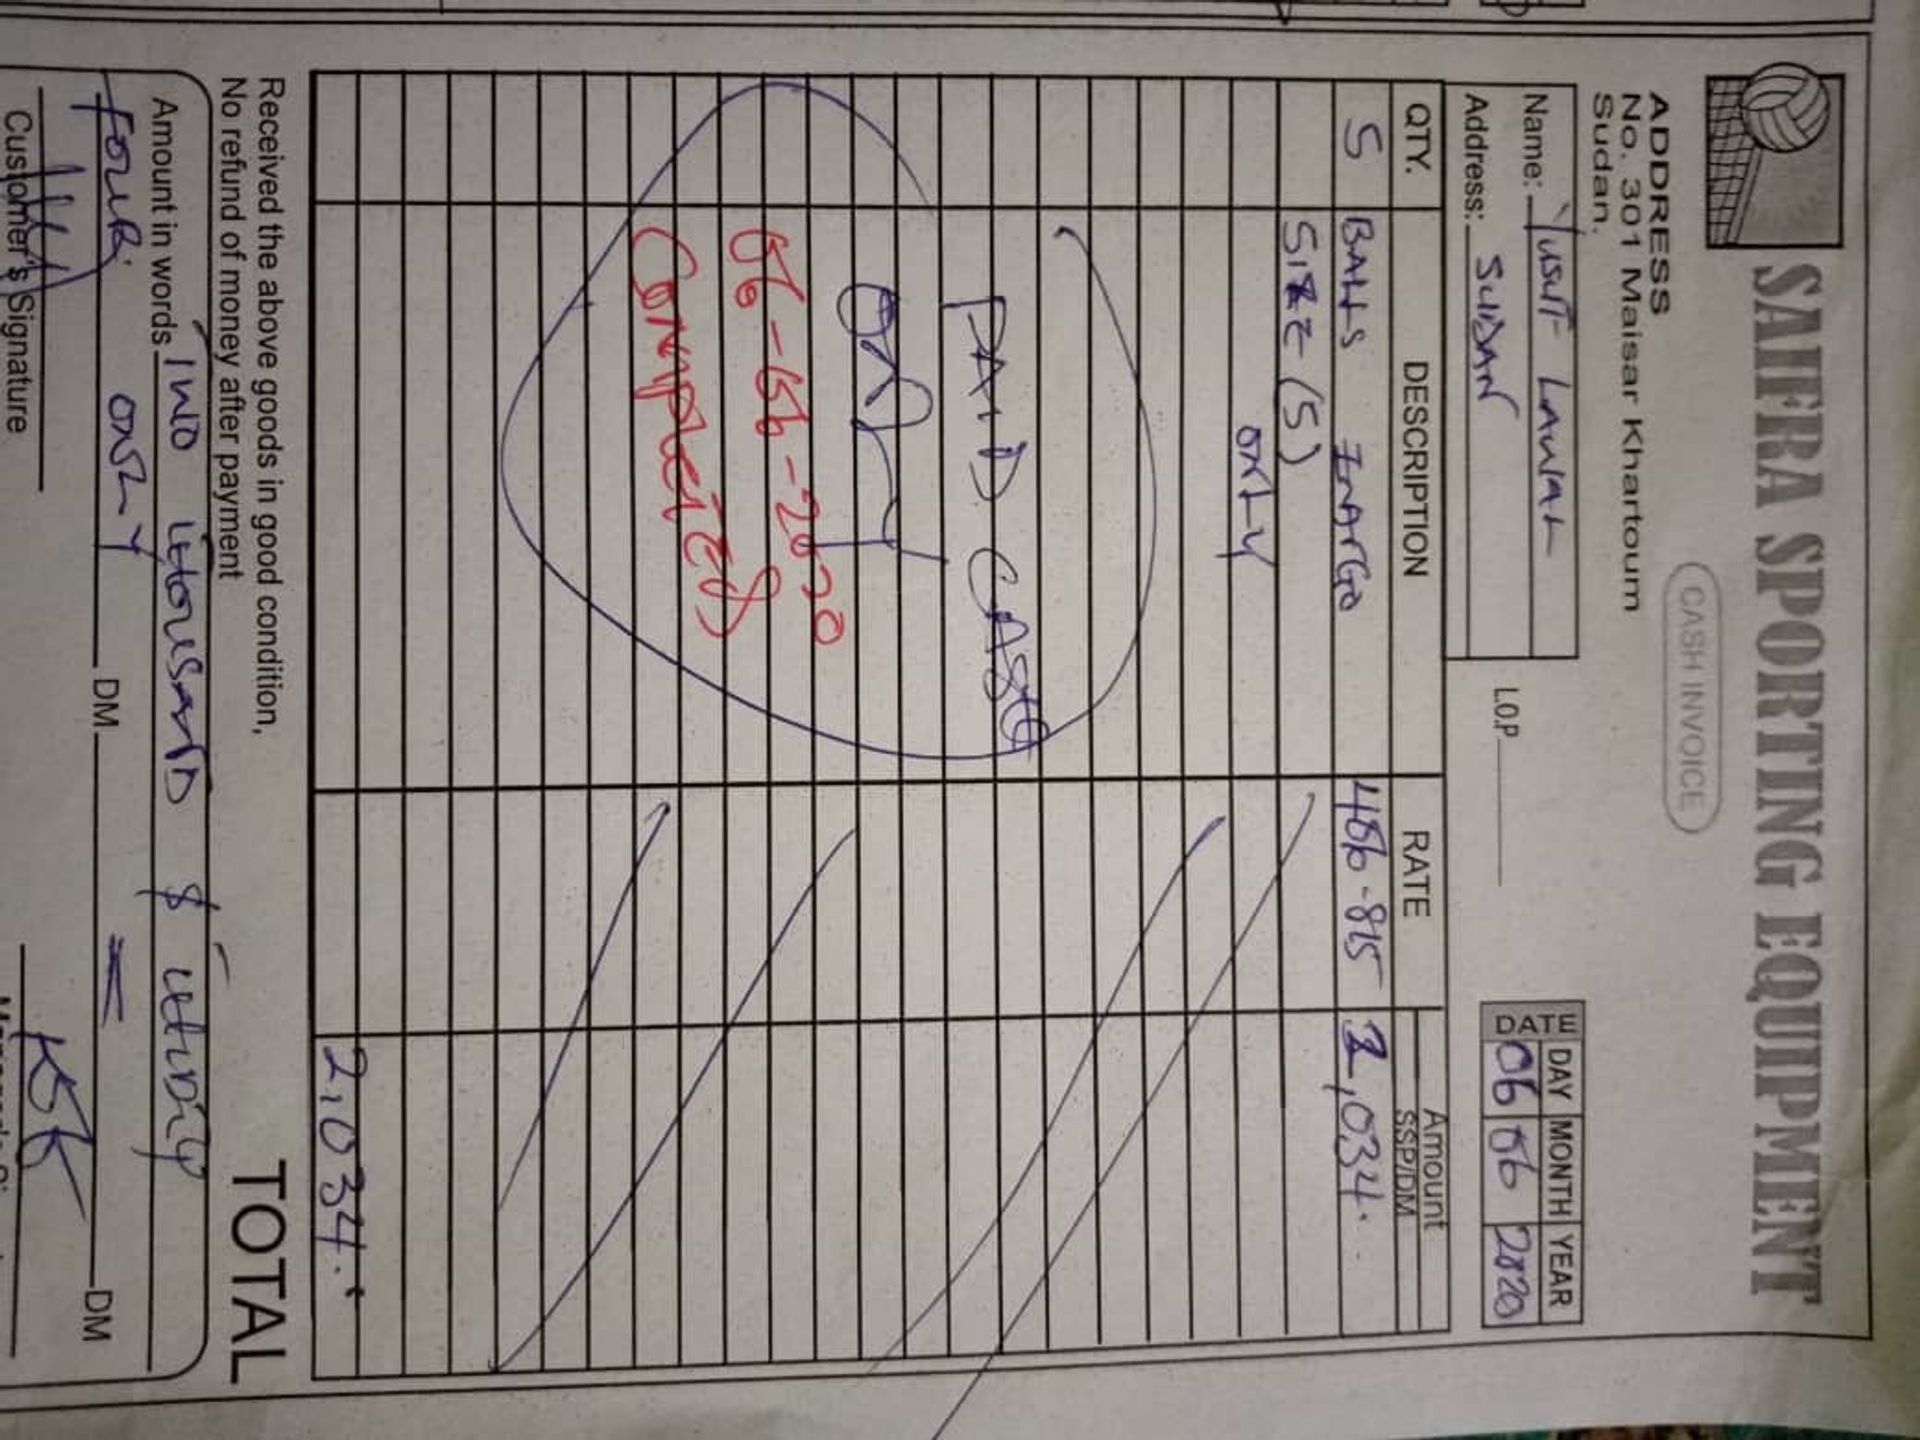 SAIFRA SPORTING EQUIPMENT
CASH INVOICE
ADDRESS
No. 301 Maisar Khartoum
Sudan.
Name: Yusuf Lawal
Address: SUDAN
L.O.P
DATE
DAY MONTH YEAR
06 06 2020
QTY. DESCRIPTION RATE Amount
SSP/DM
5 BALLS 2,034.
SIZE (5)
ONLY
PAID CASH
ONLY
06-06-2020
Completed
2,034.
Received the above goods in good condition,
No refund of money after payment
TOTAL
Amount in words Two thousand & thirty
Four. only DM DM
Customer's Signature